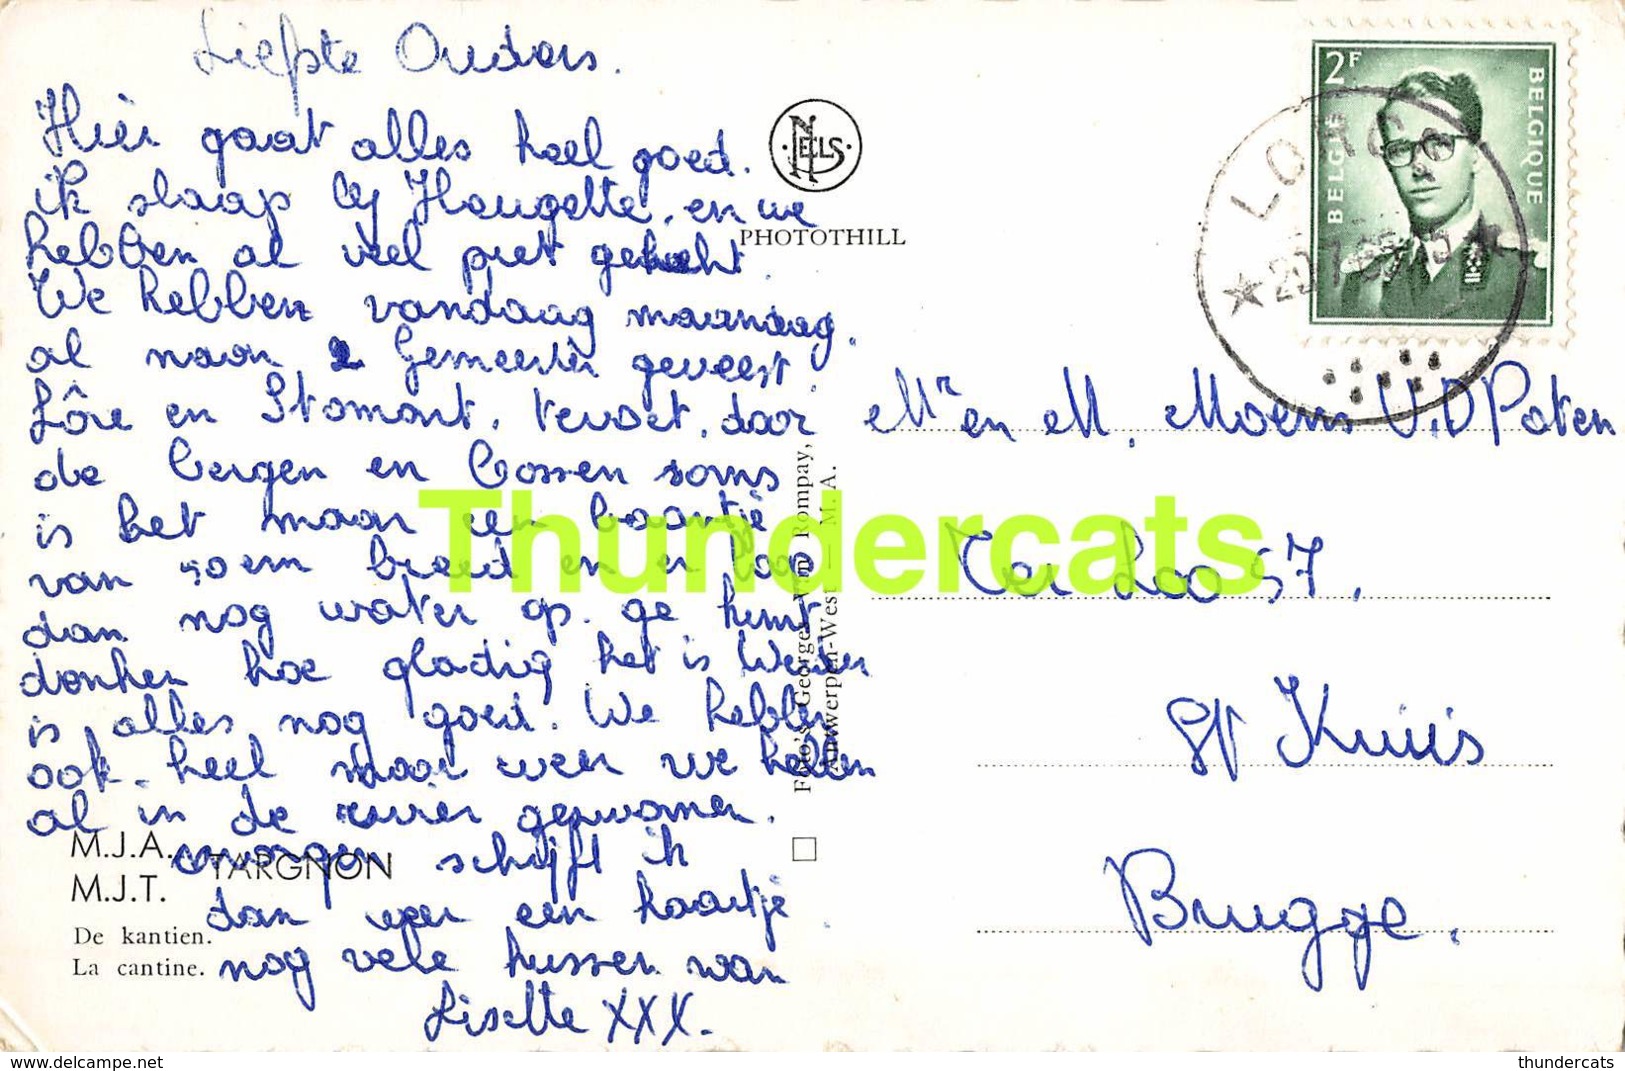 Liefste Ouders.
Hier gaat alles heel goed.
ik slaap bij Hougette. en we
hebben al veel pret gehad
We hebben vandaag maandag.
al naar 2 Gemeenten geweest
Lôre en Stomont. tevoet. door
de bergen en bossen soms
is het maar een baantje
van 50em breed en er lag
dan nog water op. ge kunt
denken hoe gladig het is Verder
is alles nog goed. We hebben
ook. heel mooi weer we hebben
al in de rivier gezwomen.
morgen schrijft ik
dan weer een kaartje
nog vele kussen van
Liselte XXX.
NELS
PHOTOTHILL
2F
BELGIE
BELGIQUE
Mr en M. Moens V.D Poten
Ter Loo 57.
St Kruis
Brugge.
Foto's Georges Van Rompay,
Antwerpen-West — M. A.
M.J.A.
M.J.T.
TARGNON
De kantien.
La cantine.
Thundercats
thundercats
www.delcampe.net